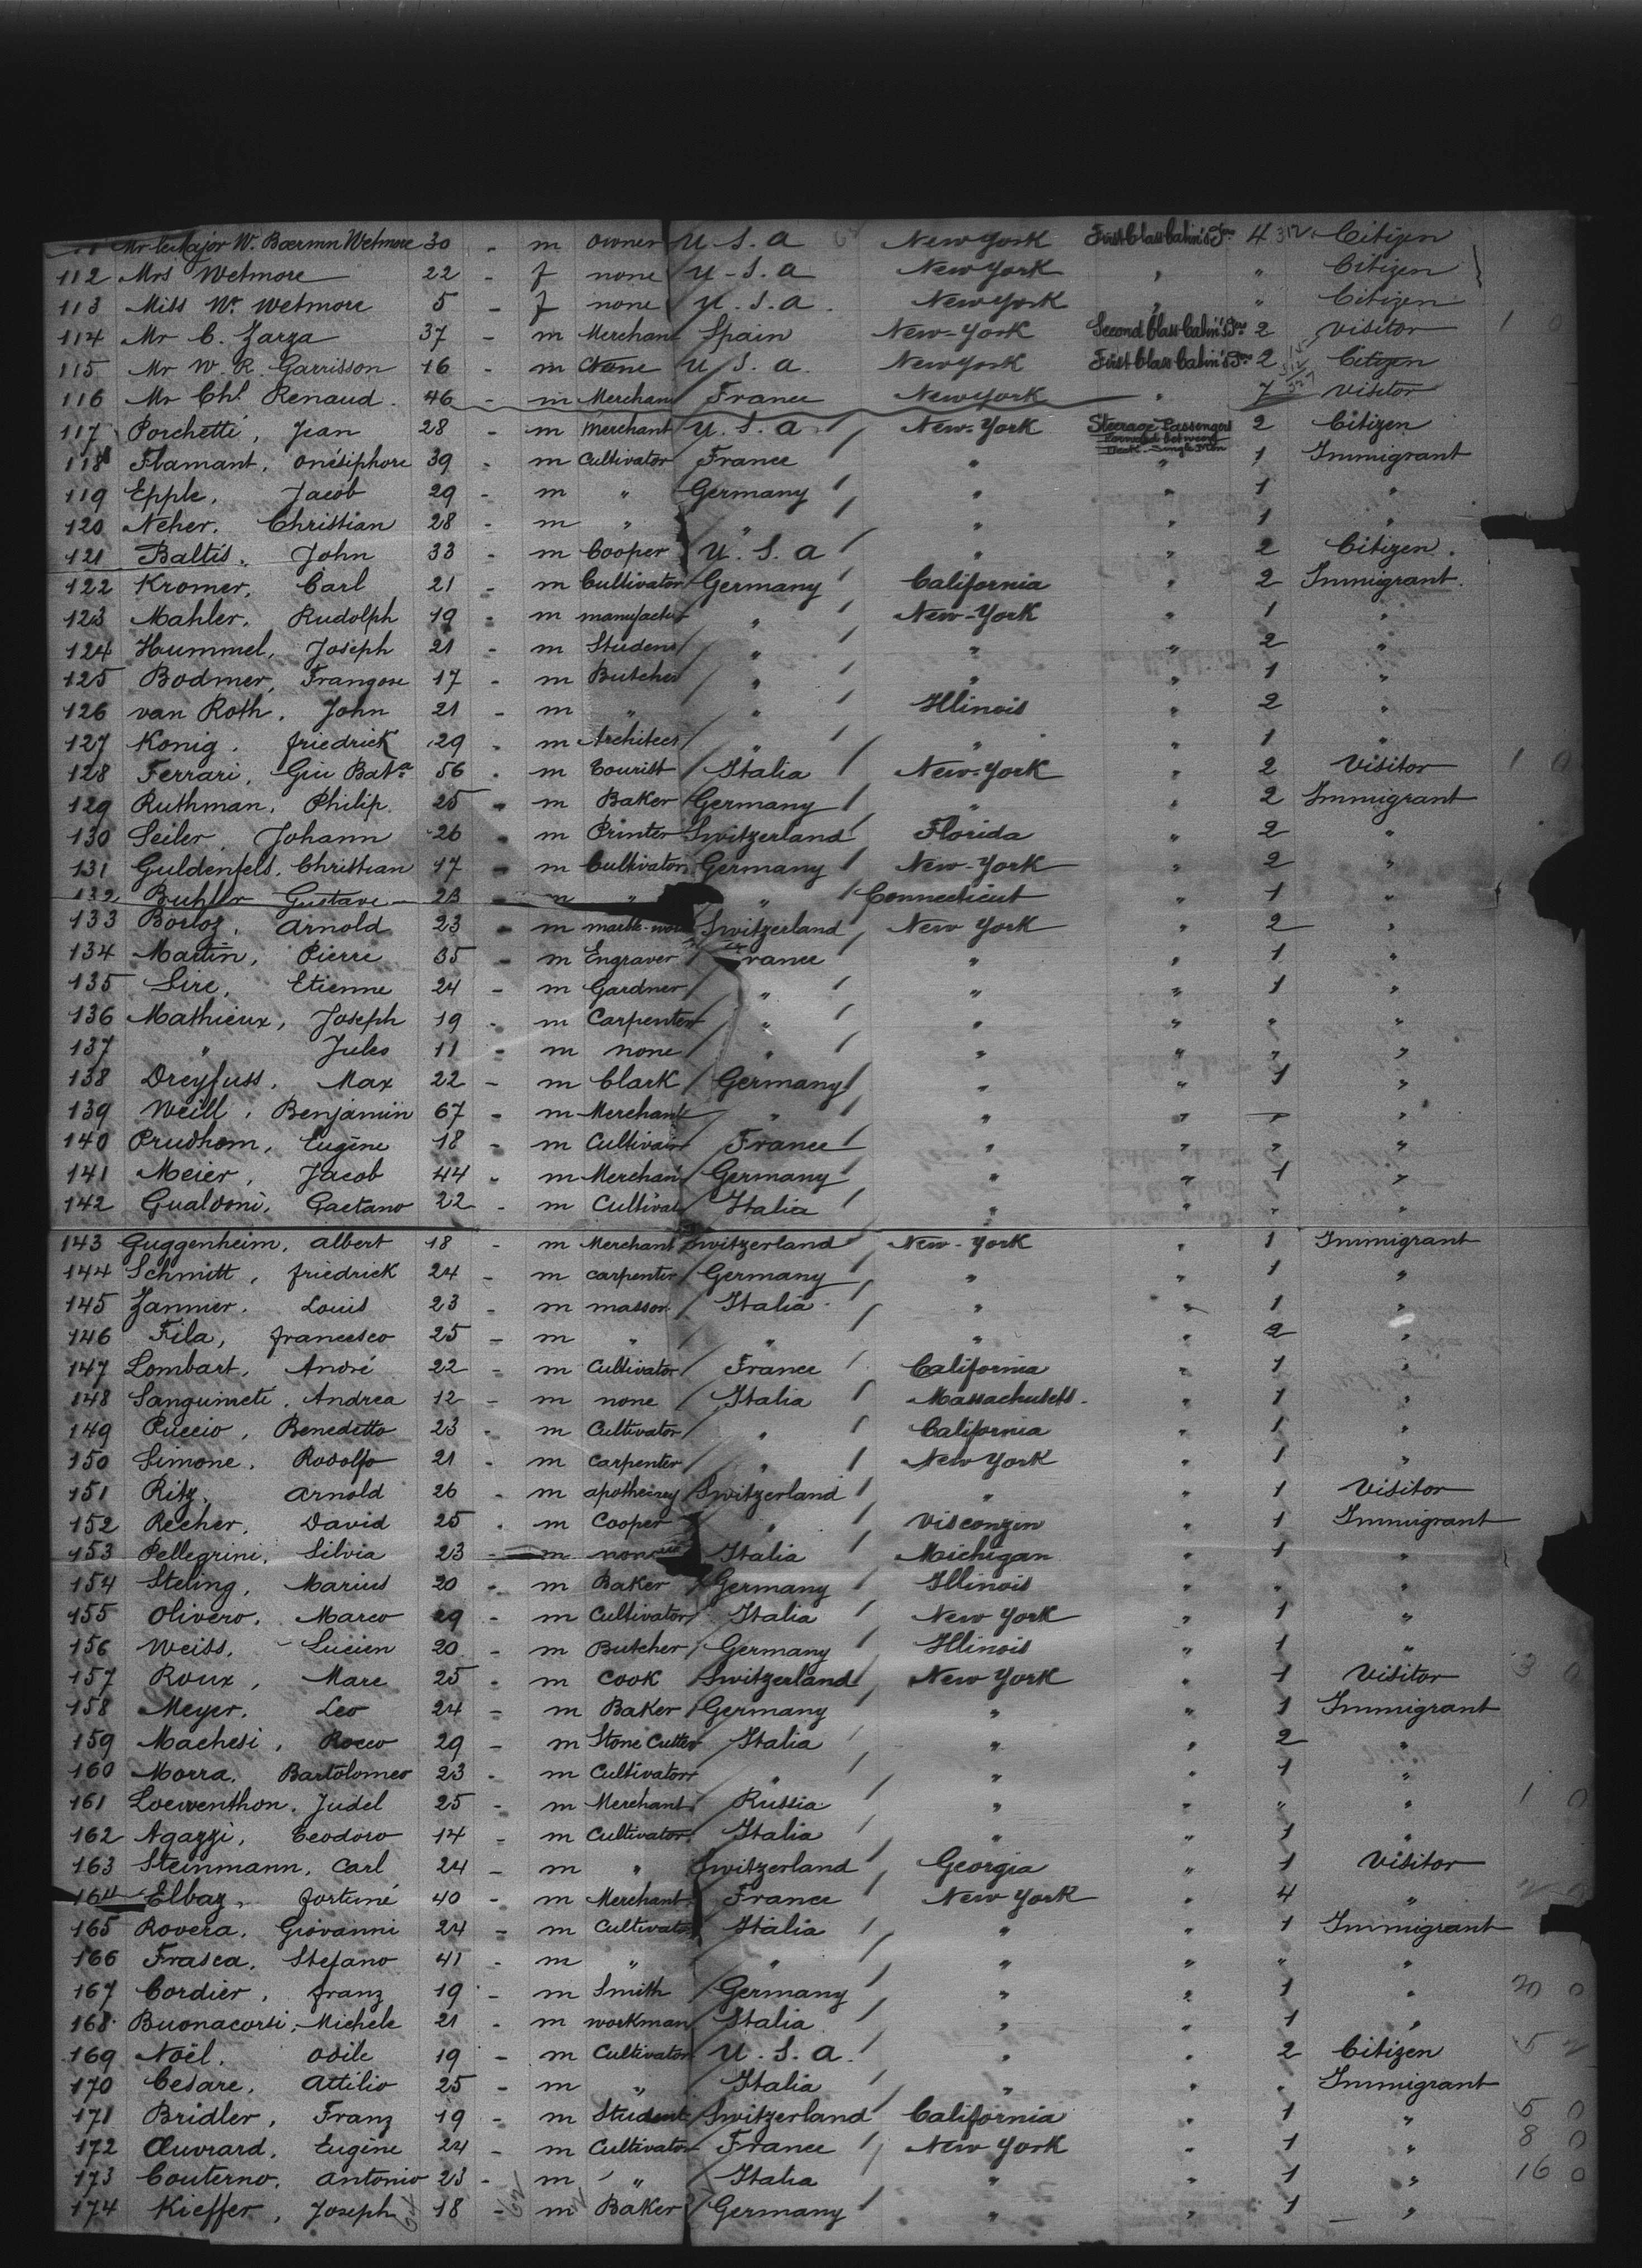 Mr le Major W. Boermn Wetmore 30 - m owner U. S. a New York First Class Cabin's 4 312 Citizen
112 Mrs Wetmore 22 - f none U - S. a New York " " Citizen
113 Miss W. Wetmore 5 - f none U. S. a. New York " " Citizen
114 Mr C. Zarza 37 - m Merchant Spain New-York Second Class Cabin's 2 Visitor 1 0
115 Mr W. R. Garrisson 16 - m None U. S. a. New York First Class Cabin's 2 Citizen
116 Mr Chl. Renaud. 46 - m Merchant France New York " 7 Visitor
117 Porchetti, Jean 28 - m Merchant U. S. a New-York Steerage Passengers 2 Citizen
118 Flamant, Onésiphore 39 - m Cultivator France " " 1 Immigrant
119 Epple, Jacob 29 - m " Germany " " 1 "
120 Neher, Christian 28 - m " " " " 1 "
121 Baltis, John 33 - m Cooper U. S. a " " 2 Citizen.
122 Kromer, Carl 21 - m Cultivator Germany California " 2 Immigrant.
123 Mahler, Rudolph 19 - m manufactur " New-York " 1 "
124 Hummel, Joseph 21 - m Student " " " 2 "
125 Bodmer, Frangose 17 - m Butcher " " " 1 "
126 van Roth, John 21 - m " " Illinois " 2 "
127 Konig, friedrick 29 - m Architect " " " 1 "
128 Ferrari, Giu Bata 56 - m Tourist Italia New-York " 2 Visitor 1 0
129 Ruthman, Philip. 25 - m Baker Germany " " 2 Immigrant
130 Seiler, Johann 26 - m Printer Switzerland Florida " 2 "
131 Guldenfels, Christian 17 - m Cultivator Germany New-York " 2 "
132 Buhler Gustave 23 - m " " Connecticut " 1 "
133 Borloz, Arnold 23 - m marble-wor Switzerland New York " 2 "
134 Martin, Pierre 35 - m Engraver France " " 1 "
135 Sire, Etienne 24 - m Gardner " " " 1 "
136 Mathieux, Joseph 19 - m Carpenter " " " " "
137 " Jules 11 - m none " " " " "
138 Dreyfuss, Max 22 - m Clark Germany " " 1 "
139 Weill, Benjamin 67 - m Merchant " " " "
140 Prudhom, Eugène 18 - m Cultivair France " " " "
141 Meier, Jacob 44 - m Merchant Germany " " 1 "
142 Gualdoni, Gaetano 22 - m Cultivat Italia " " " "
143 Guggenheim, albert 18 - m Merchant Switzerland New-York " 1 Immigrant
144 Schmitt, friedrick 24 - m carpenter Germany " " 1 "
145 Zannier, Louis 23 - m masson Italia " " 1 "
146 Fila, francesco 25 - m " " " " 2 "
147 Lombart, André 22 - m Cultivator France California " 1 "
148 Sanguineti, Andrea 12 - m none Italia Massachusets. " 1 "
149 Puccio, Benedetto 23 - m Cultivator " California " 1 "
150 Simone, Rodolfo 21 - m carpenter " New York " 1 "
151 Ritz, Arnold 26 - m apothecary Switzerland " " 1 Visitor
152 Recher, David 25 - m Cooper " Visconzin " 1 Immigrant
153 Pellegrini, Silvia 23 - m none Italia Michigan " 1 "
154 Steling, Marius 20 - m Baker Germany Illinois " " "
155 Olivero, Marco 29 - m Cultivator Italia New York " 1 "
156 Weiss, Lucien 20 - m Butcher Germany Illinois " 1 "
157 Roux, Marc 25 - m Cook Switzerland New York " 1 Visitor 3 0
158 Meyer, Leo 24 - m Baker Germany " " 1 Immigrant
159 Machesi, Rocco 29 - m Stone Cutter Italia " " 2 "
160 Morra, Bartolomeo 23 - m Cultivator " " " 1 "
161 Loewenthon, Judel 25 - m Merchant Russia " " " " 1 0
162 Agazzi, Teodoro 14 - m Cultivator Italia " " 1 "
163 Steinmann, Carl 24 - m " Switzerland Georgia " 1 Visitor
164 Elbaz, fortuné 40 - m Merchant France New York " 4 "
165 Rovera, Giovanni 24 - m Cultivator Italia " " 1 Immigrant
166 Frasca, Stefano 41 - m " " " " " "
167 Cordier, franz 19 - m Smith Germany " " 1 " 20 0
168 Buonacorsi, Michele 21 - m workman Italia " " 1 "
169 Noël, Odile 19 - m Cultivator U. S. a. " " 2 Citizen 5 2
170 Cesare, Attilio 25 - m " Italia " " " Immigrant
171 Bridler, Franz 19 - m Student Switzerland California " 1 " 5 0
172 Œuvrard, Eugène 24 - m Cultivator France New York " 1 " 8 0
173 Couterno, Antonio 23 - m " Italia " " 1 " 16 0
174 Kieffer, Joseph 18 - m Baker Germany " " 1 "